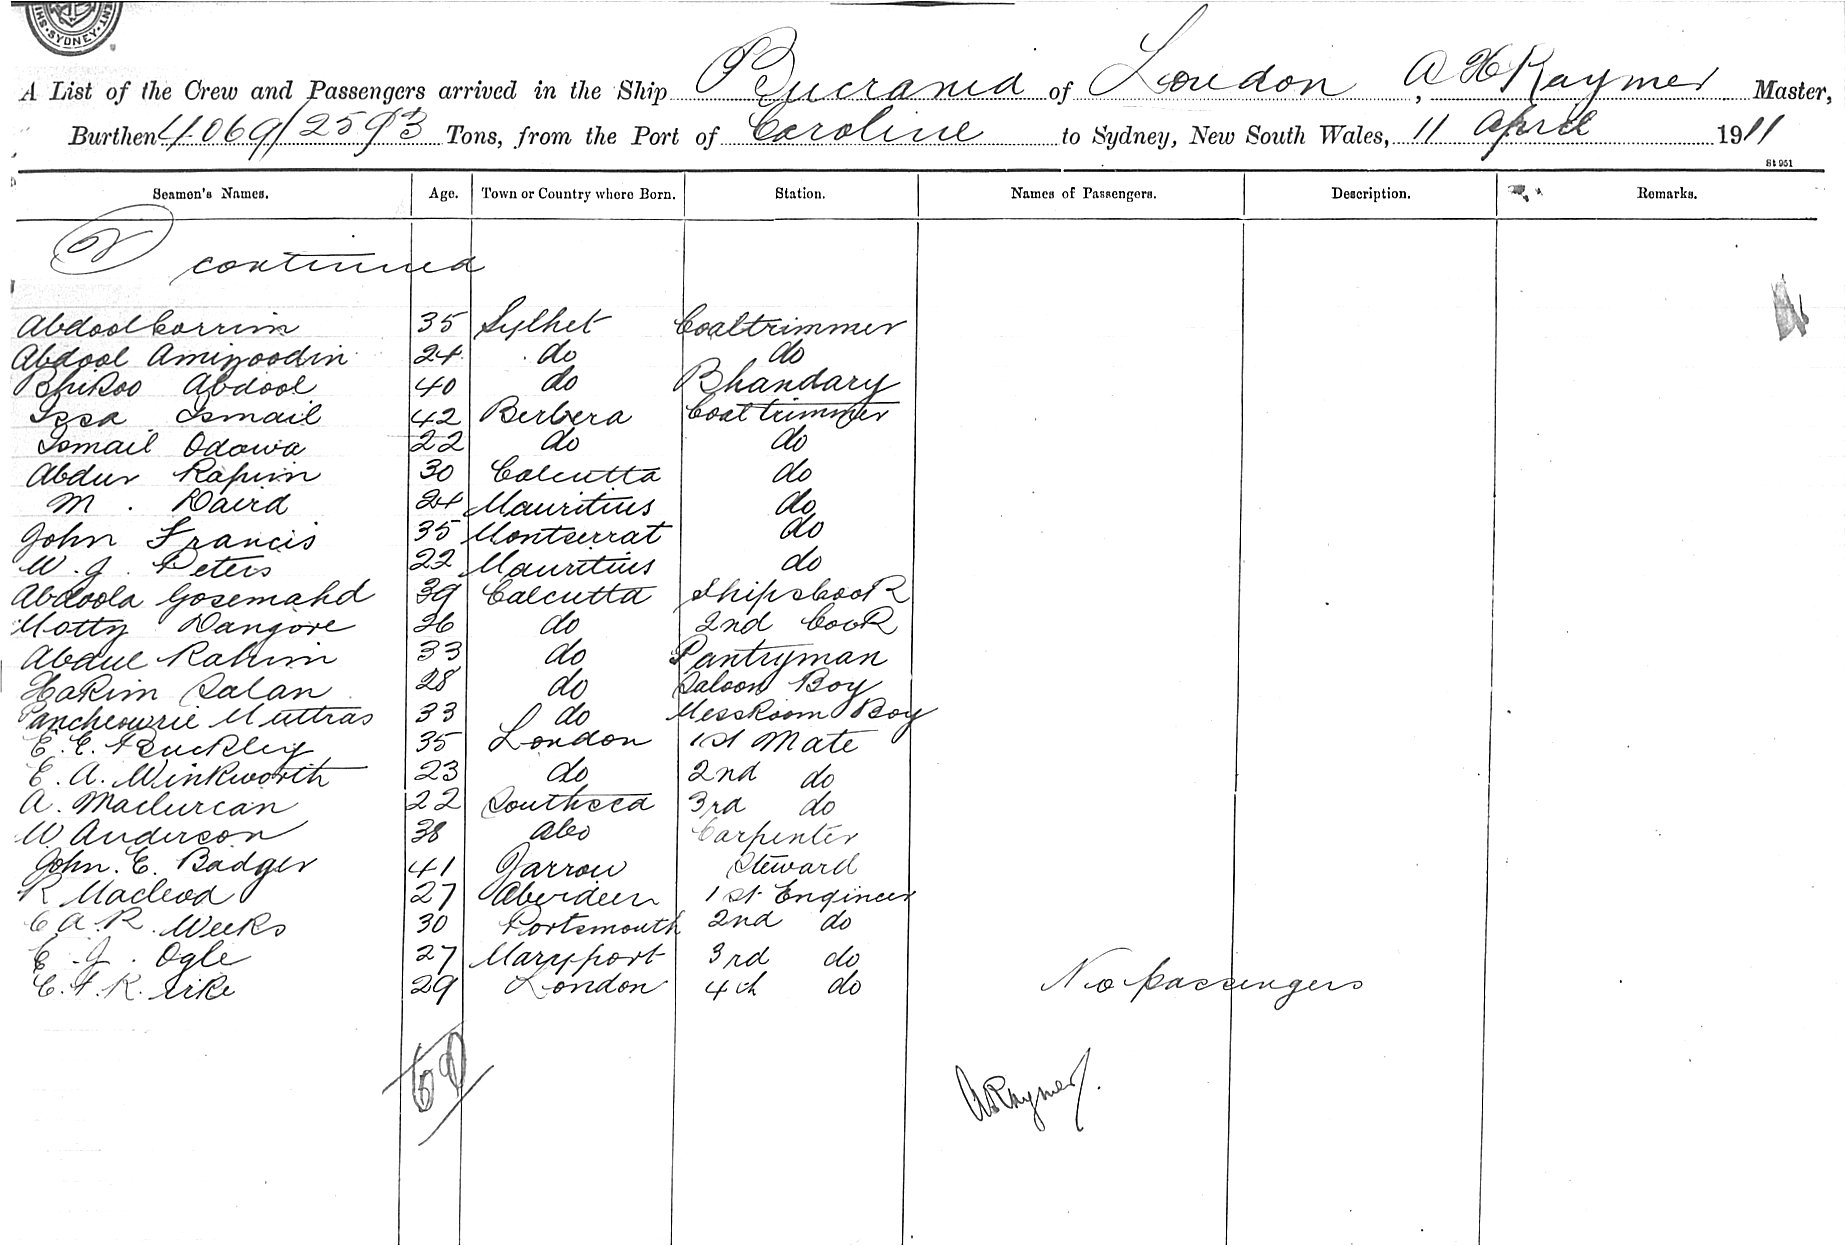 SYDNEY
A List of the Crew and Passengers arrived in the Ship Bucrania of London, A H Raymer Master,
Burthen 4069/2593 Tons, from the Port of Caroline to Sydney, New South Wales, 11 April 1911
St 951
Seamen's Names. Age. Town or Country where Born. Station. Names of Passengers. Description. Remarks.
2 continued
Abdool Corrim 35 Sylhet Coaltrimmer
Abdool Amizoodin 24 do do
Bhikoo Abdool 40 do Bhandary
Issa Ismail 42 Berbera Coaltrimmer
Ismail Odowa 22 do do
Abdur Rahim 30 Calcutta do
M. Daird 24 Mauritius do
John Francis 35 Montserrat do
W. J. Peters 22 Mauritius do
Abdoola Gosemahd 39 Calcutta Ships Cook
Motty Dangore 26 do 2nd Cook
Abdul Rahim 33 do Pantryman
Hakim Salan 28 do Saloon Boy
Pancheowrie Muttras 33 do Messroom Boy
E. E. Buckley 35 London 1st Mate
E. A. Winkworth 23 do 2nd do
A. Maclurcan 22 Southsea 3rd do
W Anderson 38 Abo Carpenter
John. E. Badger 41 Jarrow Steward
R Macleod 27 Aberdeen 1st Engineer
C A. R. Weeks 30 Portsmouth 2nd do
E. J. Ogle 27 Maryport 3rd do
C. F. R. 29 London 4th do No passengers
69
A H Raymer